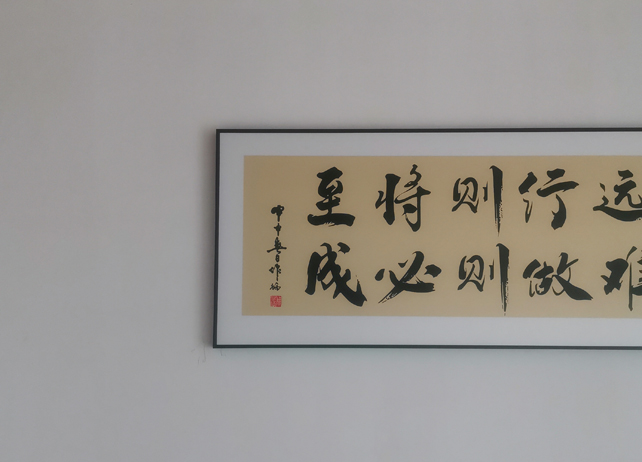 远行则将至
难做则必成
甲申春日作